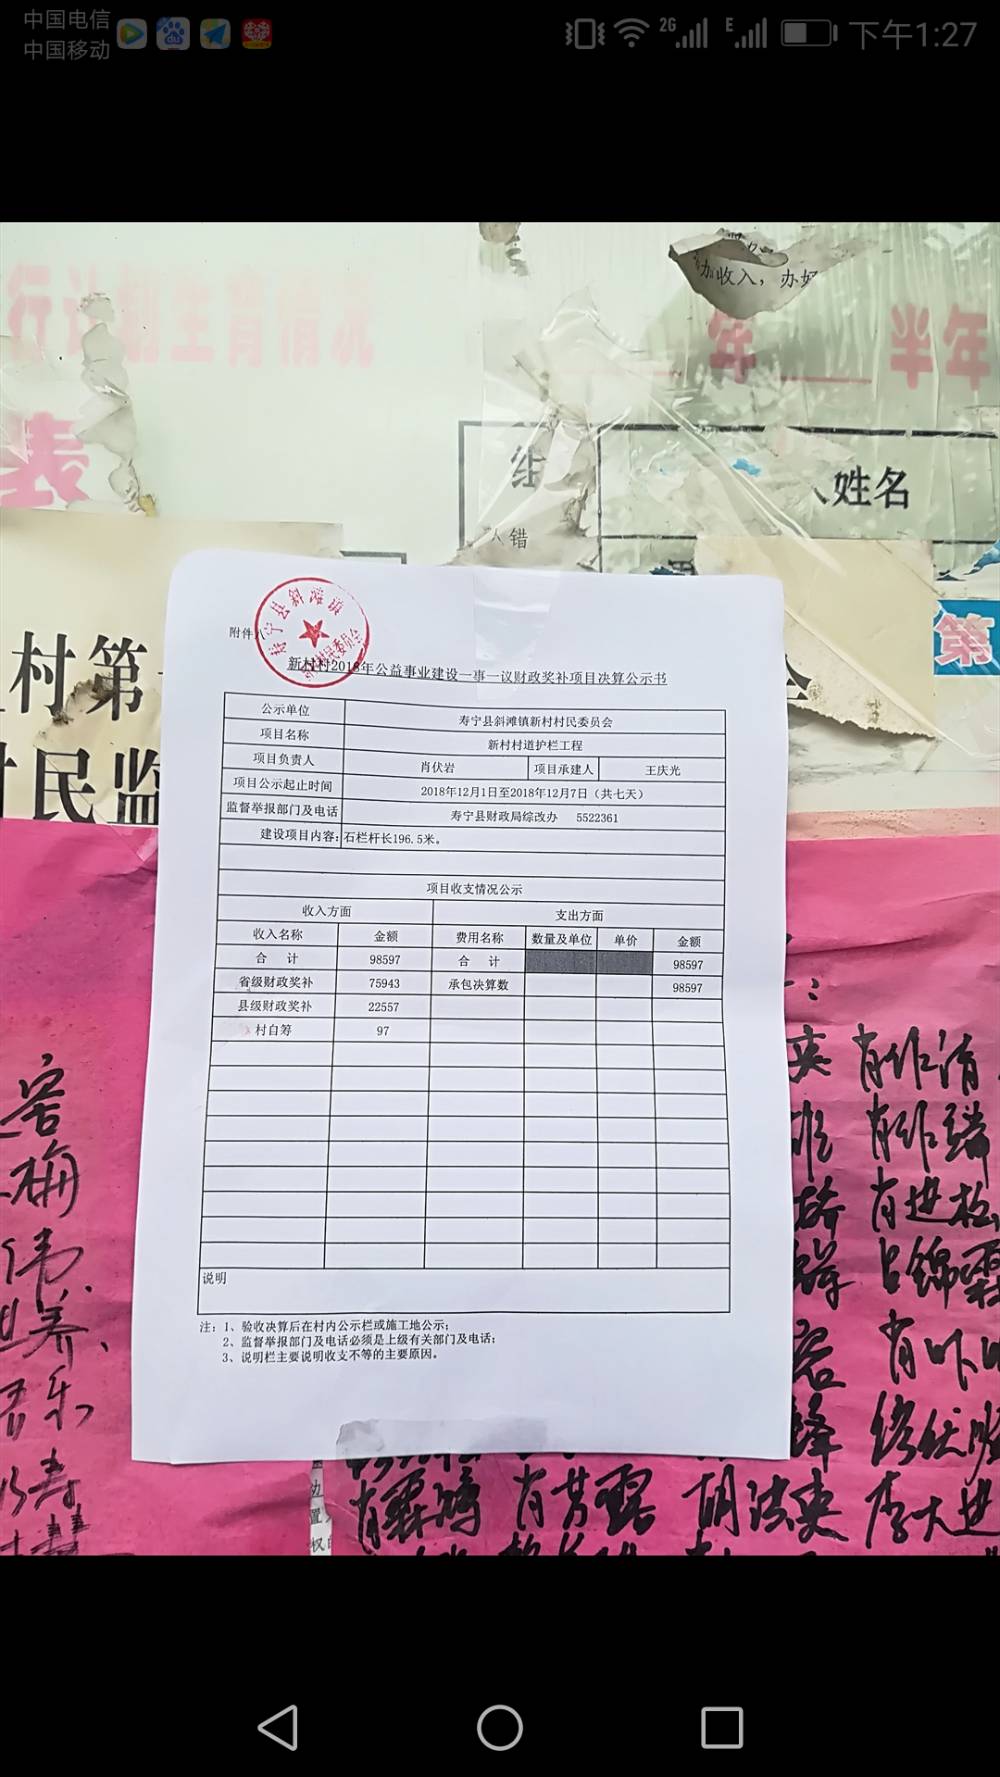 中国电信
中国移动
2G
E
下午1:27
行计划生育情况
年 半年
表
加收入，办好
组
人姓名
人错
村第一
村民监
第
会
附件八
寿宁县斜滩镇
新村村民委员会
新村村2018年公益事业建设一事一议财政奖补项目决算公示书
公示单位 寿宁县斜滩镇新村村民委员会
项目名称 新村村道护栏工程
项目负责人 肖伏岩 项目承建人 王庆光
项目公示起止时间 2018年12月1日至2018年12月7日（共七天）
监督举报部门及电话 寿宁县财政局综改办 5522361
建设项目内容：石栏杆长196.5米。
项目收支情况公示
收入方面 支出方面
收入名称 金额 费用名称 数量及单位 单价 金额
合 计 98597 合 计 98597
省级财政奖补 75943 承包决算数 98597
县级财政奖补 22557
村自筹 97
说明
注：1、验收决算后在村内公示栏或施工地公示；
2、监督举报部门及电话必须是上级有关部门及电话；
3、说明栏主要说明收支不等的主要原因。
容
梅
伟
养
乐
寿
肖作清
肖作
肖进松
锦
肖
李大进